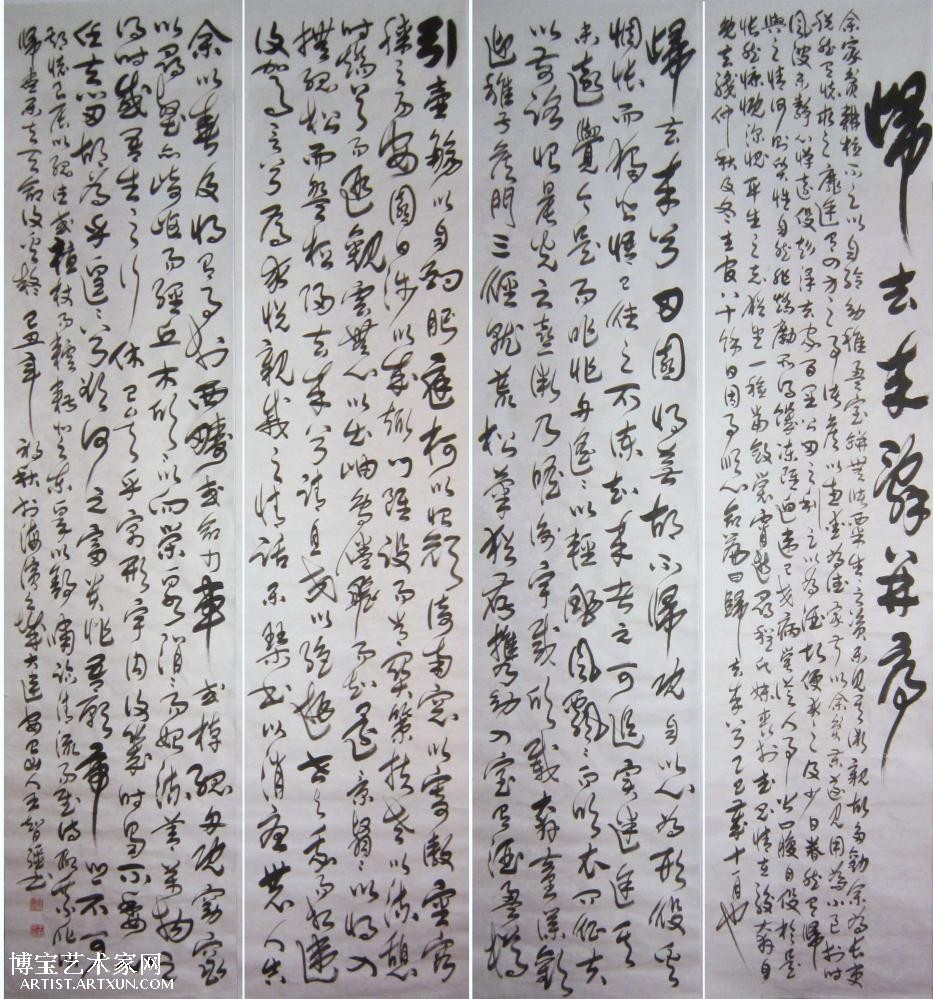 歸去來辭并序
余家貧耕植不足以自給幼稚盈室缾無儲粟生生所資未見其術親故多勸余為長吏
脫然有懷求之靡途會有四方之事諸侯以惠愛為德家叔以余貧苦遂見用為小邑於時
風波未靜心憚遠役彭澤去家百里公田之利足以為酒故便求之及少日眷然有歸
與之情何則質性自然非矯勵所得飢凍雖迫違己交病嘗從人事皆口腹自役於是
悵然慷慨深愧平生之志猶望一稔當斂裳宵逝尋程氏妹喪於武昌情在駿奔自
免去職仲秋及冬在官八十餘日因事順心命篇曰歸去來兮乙巳歲十一月也
歸去來兮田園將蕪胡不歸既自以心為形役奚
惆悵而獨悲悟已往之不諫知來者之可追實迷途其
未遠覺今是而昨非舟遙遙以輕颺風飄飄而吹衣問征夫
以前路恨晨光之熹微乃瞻衡宇載欣載奔童僕歡
迎稚子候門三徑就荒松菊猶存攜幼入室有酒盈樽
引壺觴以自酌眄庭柯以怡顏倚南窗以寄傲審容
膝之易安園日涉以成趣門雖設而常關策扶老以流憩
時矯首而遐觀雲無心以出岫鳥倦飛而知還景翳翳以將入
撫孤松而盤桓歸去來兮請息交以絕遊世與我而相違
復駕言兮焉求悅親戚之情話樂琴書以消憂農人告
余以春及將有事於西疇或命巾車或棹孤舟既窈窕
以尋壑亦崎嶇而經丘木欣欣以向榮泉涓涓而始流善萬物之
得時感吾生之行休已矣乎寓形宇內復幾時曷不委心
任去留胡為乎遑遑兮欲何之富貴非吾願帝鄉不可
期懷良辰以孤往或植杖而耘耔登東皋以舒嘯臨清流而賦詩聊乘化以
歸盡樂夫天命復奚疑 己丑年初秋於海濱之城大連山人王智書
博宝艺术家网
ARTIST.ARTXUN.COM